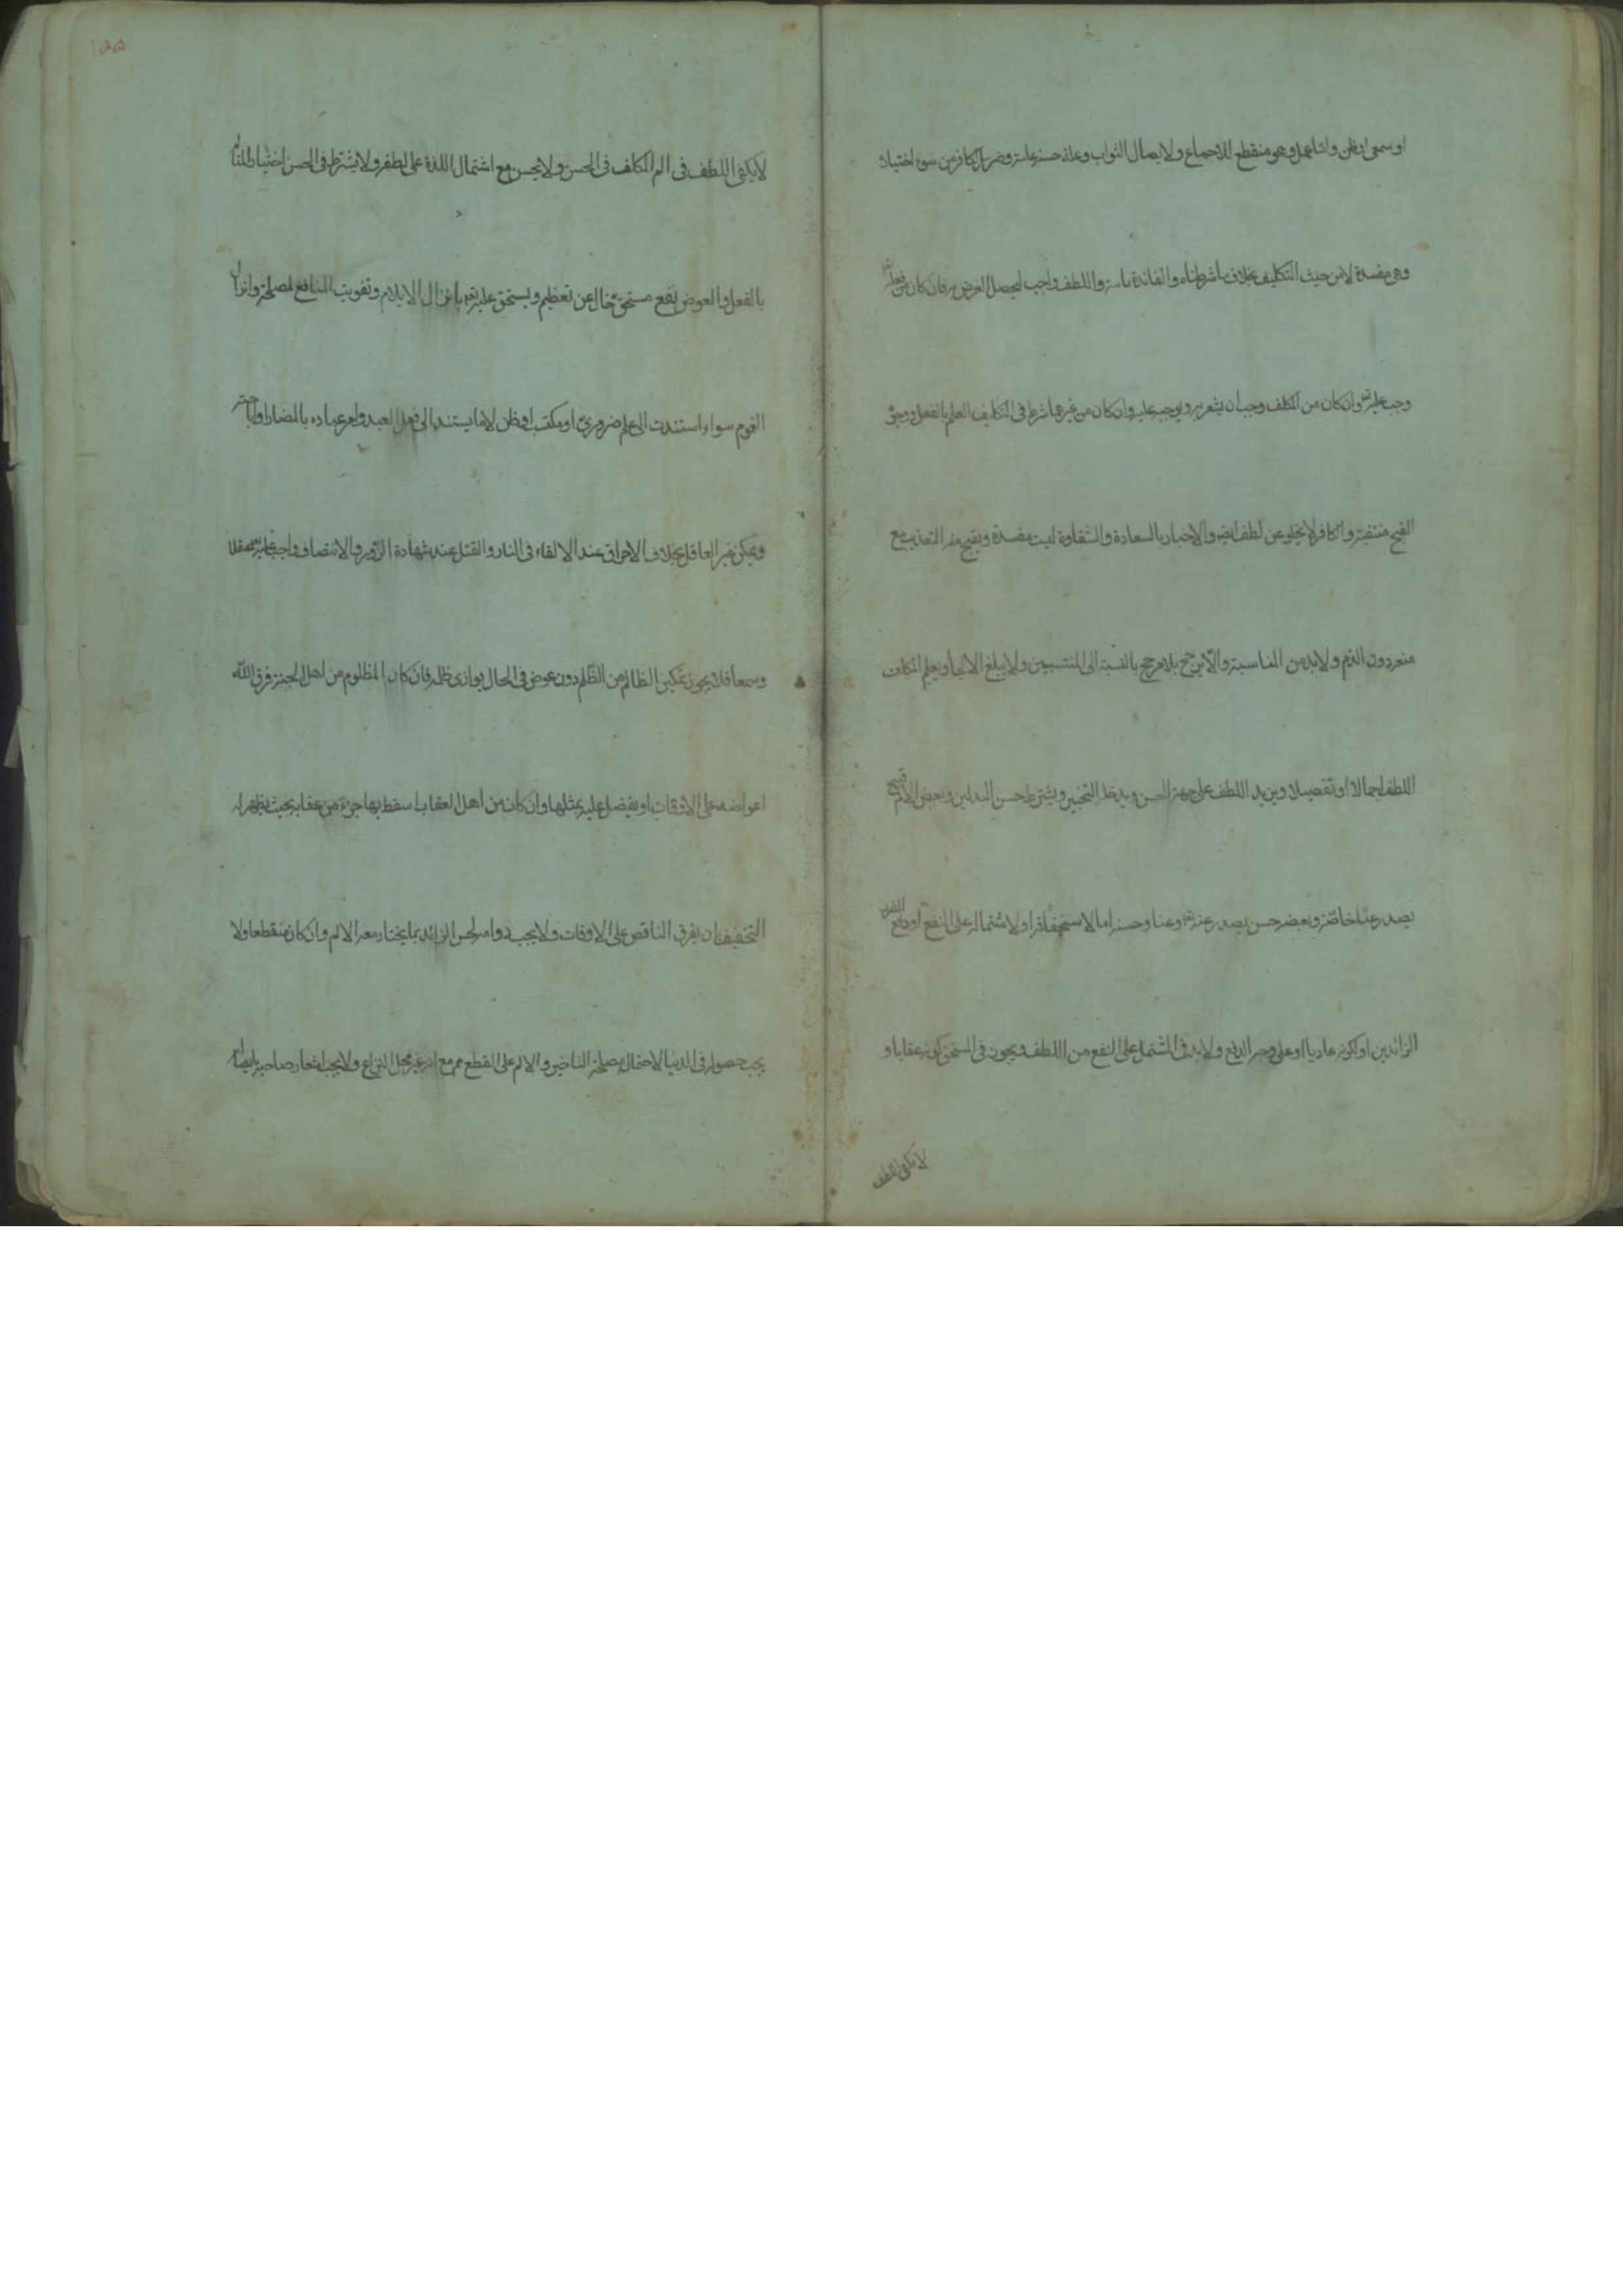 او سمعى او ظن واما عمل وهو منقطع للاجماع ولايصال الثواب وعلة حسنه عامة وضرر الكافر من سوء اختياره
وهو مفسدة لا من حيث التكليف بخلاف ما شرطناه والفائدة ثابتة واللطف واجب لتحصيل الغرض به فان كان من فعله تع
وجب عليه تع وان كان من المكلف وجب ان يشعره به ويوجبه عليه وان كان من غيرهما شرط فى التكليف العلم بالفعل ووجوه
القبح منتفية والكافر لا يخلو عن لطف ايضه والاخبار بالسعادة والشقاوة ليست مفسدة ويقبح منه التعذيب مع
منعه دون الذم ولابد من المناسبة والا ترجح بلا مرجح بالنسبة الى المنتسبين ولا يبلغ الالجأ ويعلم المكلف
اللطف اجمالا او تفصيلا ويزيد اللطف على جهة الحسن ويدخله التخيير ويشترط حسن البدلين وبعض الالم قبيح
يصدر عنا خاصة وبعضه حسن يصدر عنه تع وعنا وحسنه اما لاستحقاقه او لاشتماله على النفع او دفع الضرر
الزائدين او لكونه عاديا او على وجه الدفع ولابد فى المشتمل على النفع من اللطف ويجوز فى المستحق كونه عقابا و
لا يكفى اللطف
١٥٥
لا يكفى اللطف فى الم المكلف فى الحسن ولا يحسن مع اشتمال اللذة على لطفه ولا يشترط فى الحسن اختيار المتألم
بالفعل والعوض نفع مستحق خال عن تعظيم ويستحق عليه تع بانزال الالام وتفويت المنافع لمصلحة وانزال
الغموم سواء استندت الى علم ضرورى او مكتسب او ظن لا ما يستند الى فعل العبد وامر عباده بالمضار او اباحته
وتمكين غير العاقل بخلاف الاحراق عند الالقاء فى النار والقتل عند شهادة الزور والانتصاف واجب عليه تع عقلا
وسمعا فلا يجوز تمكين الظالم من الظلم دون عوض فى الحال يوازى ظلمه فان كان المظلوم من اهل الجنة فرق الله
اعواضه على الاوقات او يفضل عليه بمثلها وان كان من اهل العقاب اسقط بها جزء من عقابه بحيث يظهر له
التخفيف بان يفرق الناقص على الاوقات ولا يجب دوامه لحسن الزائد بما يختار معه الالم وان كان منقطعا ولا
يجب حصوله فى الدنيا لاحتمال مصلحة التاخير والالم على القطع مم مع انه غير محل النزاع ولا يجب اشعار صاحبه بايصاله